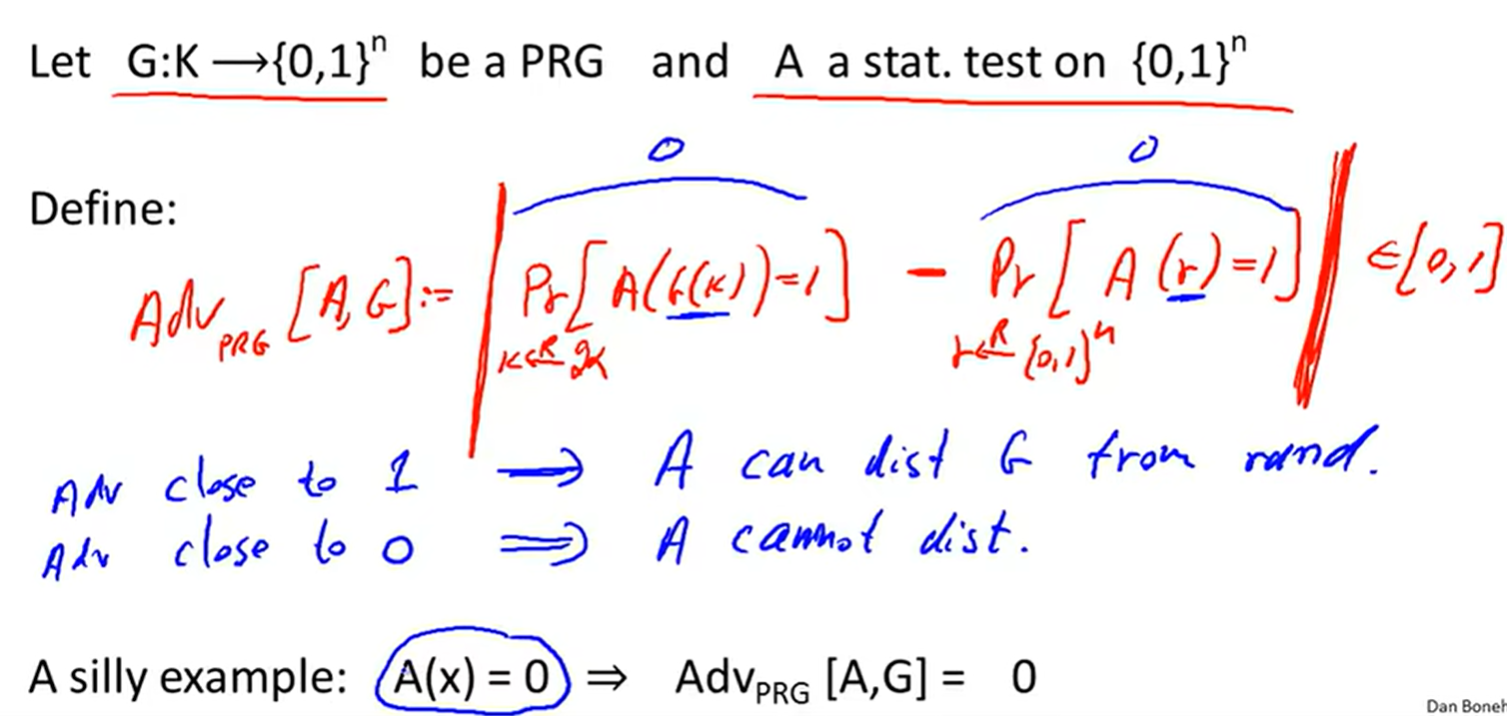 Let G:K ⟶{0,1}ⁿ be a PRG and A a stat. test on {0,1}ⁿ
0 0
Define:
Adv_PRG [A,G] := | Pr[A(G(K))=1] - Pr[A(r)=1] | ∈[0,1]
K ←ᴿ 𝒦 r ←ᴿ {0,1}ⁿ
Adv close to 1 ⟹ A can dist G from rand.
Adv close to 0 ⟹ A cannot dist.
A silly example: A(x) = 0 ⇒ Adv_PRG [A,G] = 0
Dan Boneh